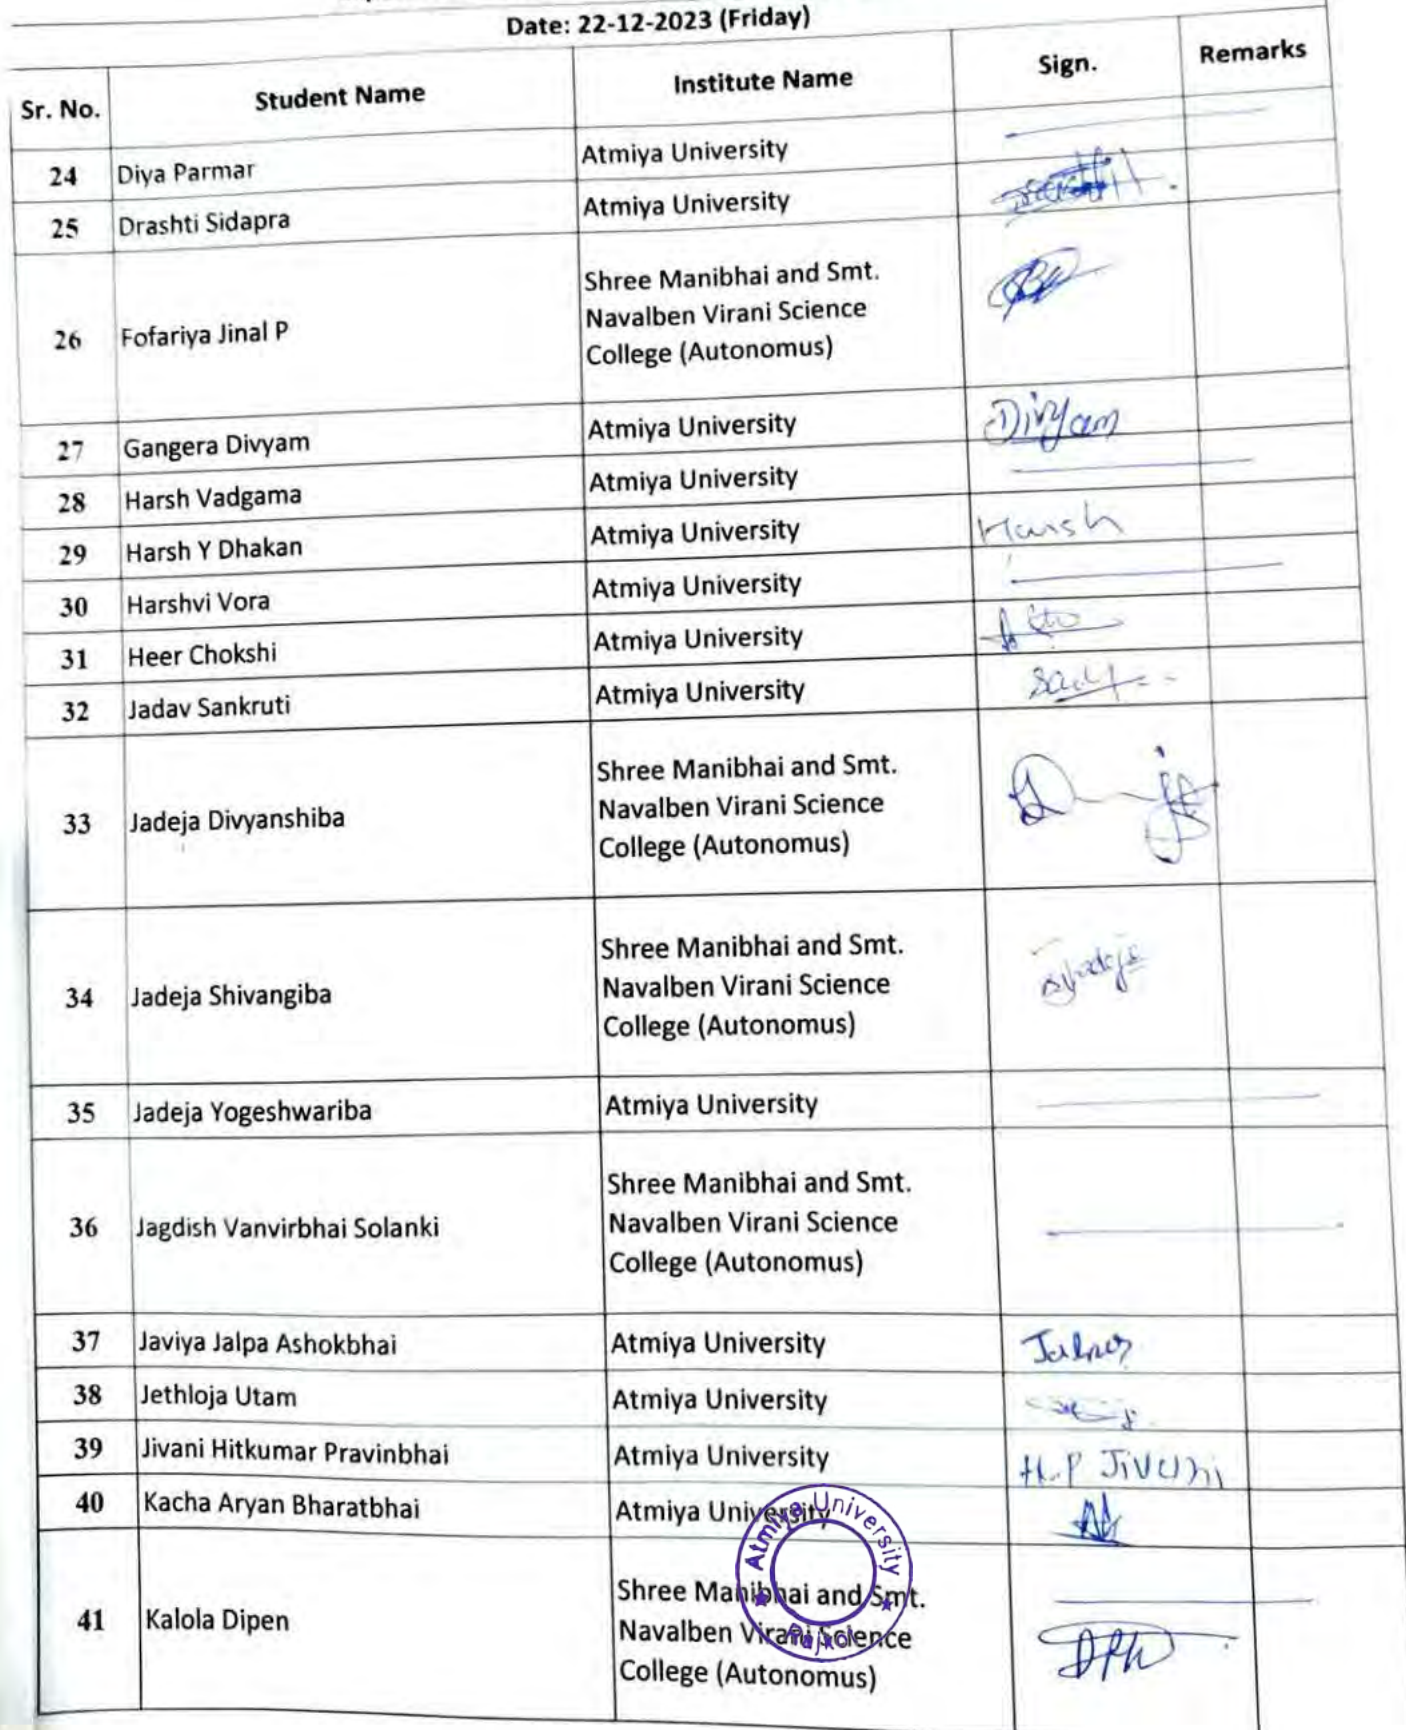 Date: 22-12-2023 (Friday)
Sr. No. Student Name Institute Name Sign. Remarks
24 Diya Parmar Atmiya University
25 Drashti Sidapra Atmiya University
26 Fofariya Jinal P Shree Manibhai and Smt.
Navalben Virani Science
College (Autonomus)
27 Gangera Divyam Atmiya University Divyam
28 Harsh Vadgama Atmiya University
29 Harsh Y Dhakan Atmiya University Harsh
30 Harshvi Vora Atmiya University
31 Heer Chokshi Atmiya University
32 Jadav Sankruti Atmiya University
33 Jadeja Divyanshiba Shree Manibhai and Smt.
Navalben Virani Science
College (Autonomus)
34 Jadeja Shivangiba Shree Manibhai and Smt.
Navalben Virani Science
College (Autonomus)
35 Jadeja Yogeshwariba Atmiya University
36 Jagdish Vanvirbhai Solanki Shree Manibhai and Smt.
Navalben Virani Science
College (Autonomus)
37 Javiya Jalpa Ashokbhai Atmiya University
38 Jethloja Utam Atmiya University
39 Jivani Hitkumar Pravinbhai Atmiya University H.P Jivani
40 Kacha Aryan Bharatbhai Atmiya University
41 Kalola Dipen Shree Manibhai and Smt.
Navalben Virani Science
College (Autonomus)
Atmiya University
Rajkot